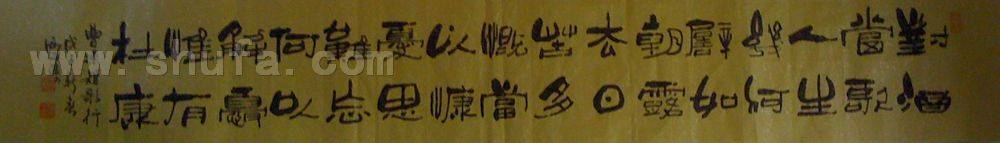 對酒
當歌
人生
幾何
譬如
朝露
去日
苦多
慨當
以慷
憂思
難忘
何以
解憂
惟有
杜康
www.shufa.com